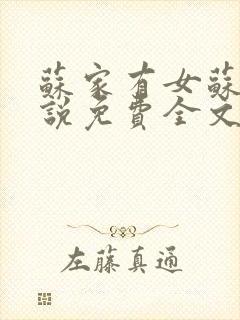 蘇家有女蘇
說免費全文
左藤真通